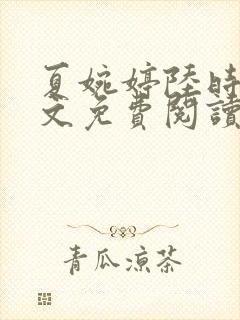 夏婉婷陸時
文免費閱讀
青瓜涼茶